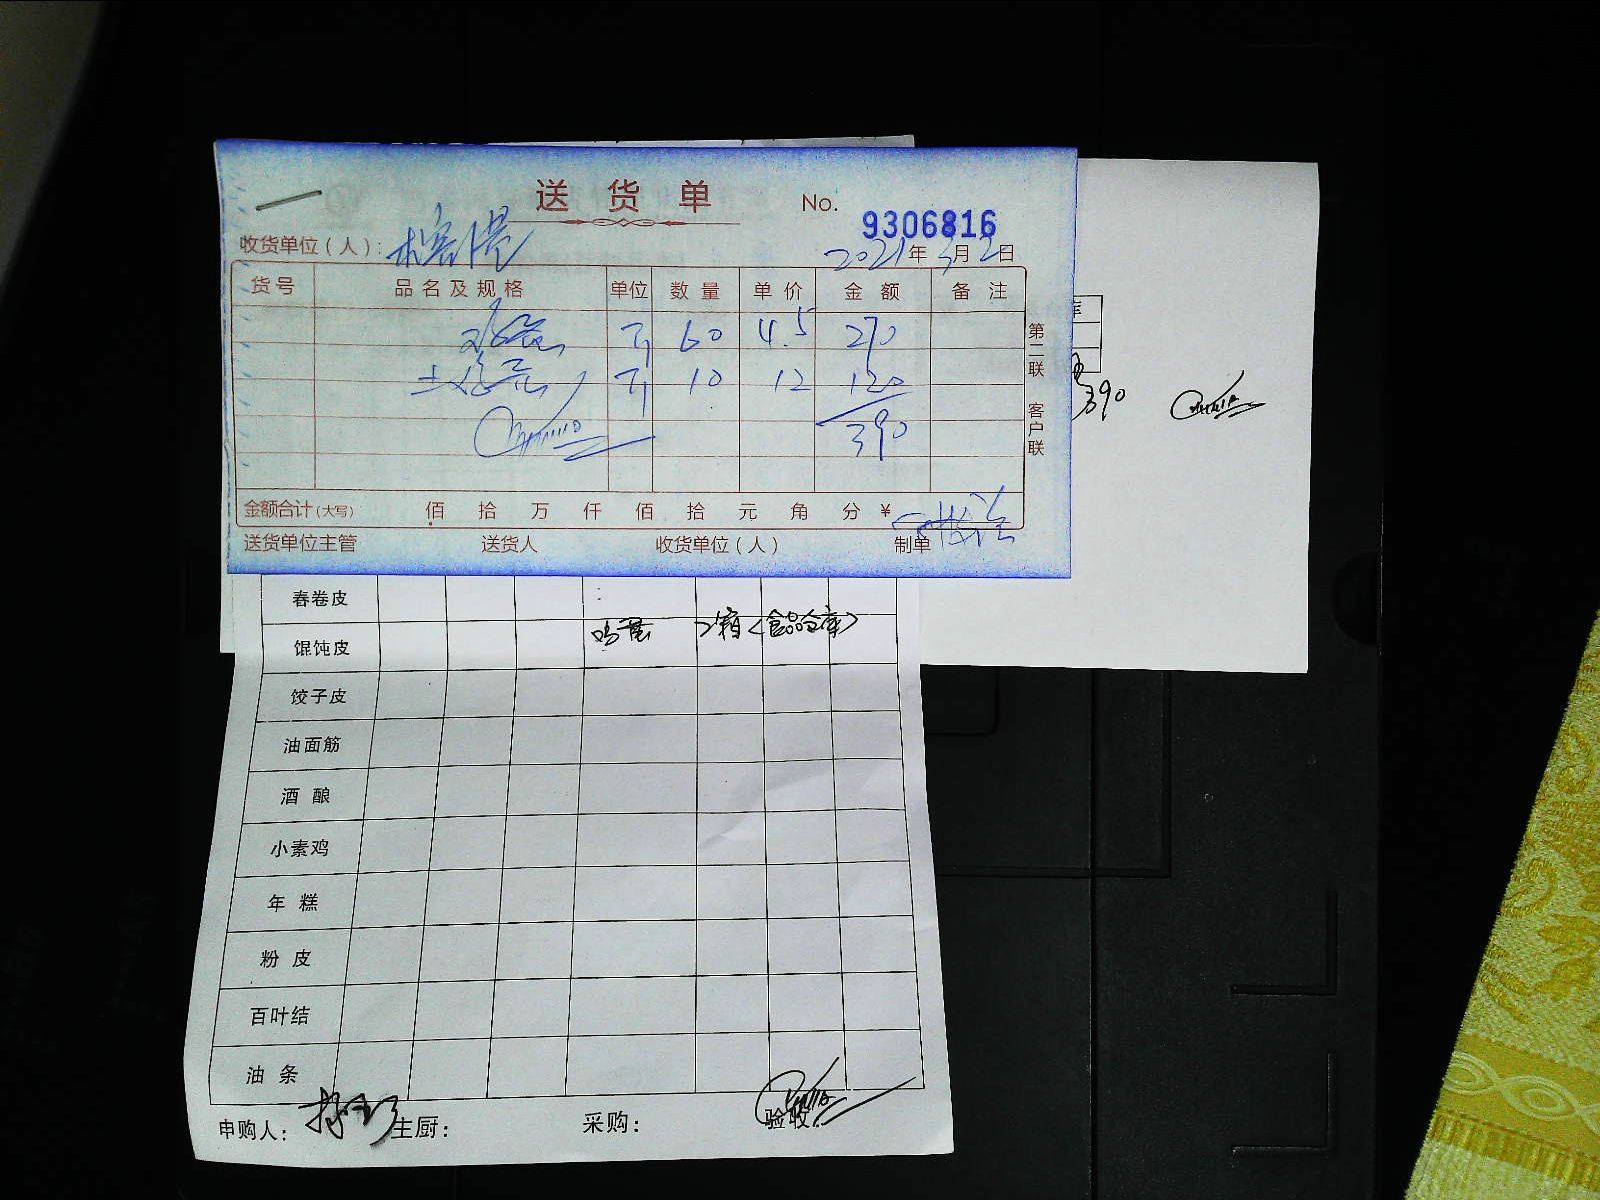 送货单 No. 9306816
收货单位(人): 2021年3月2日
货号 品名及规格 单位 数量 单价 金额 备注
鸡蛋 斤 60 4.5 270
斤 10 12 120
390
第二联 客户联
金额合计(大写) 佰 拾 万 仟 佰 拾 元 角 分 ¥
送货单位主管 送货人 收货单位(人) 制单
库
390
春卷皮
馄饨皮 鸡蛋 2箱(食品仓库)
饺子皮
油面筋
酒酿
小素鸡
年糕
粉皮
百叶结
油条
申购人: 主厨: 采购: 验收: